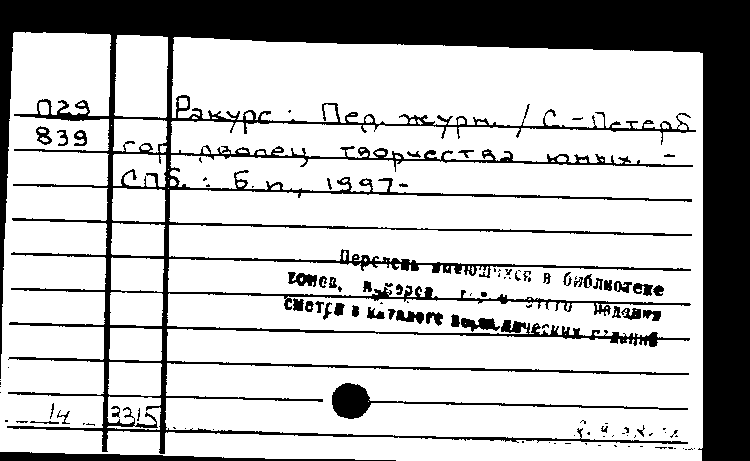 П29 Ракурс : Пед. журн. / С.-Петерб
839 гор. дворец творчества юных. -
СПб. : Б. и., 1997-
Перечень имеющихся в библиотеке
томов, номеров, этого издания
смотри в каталоге периодических изданий
14 3315